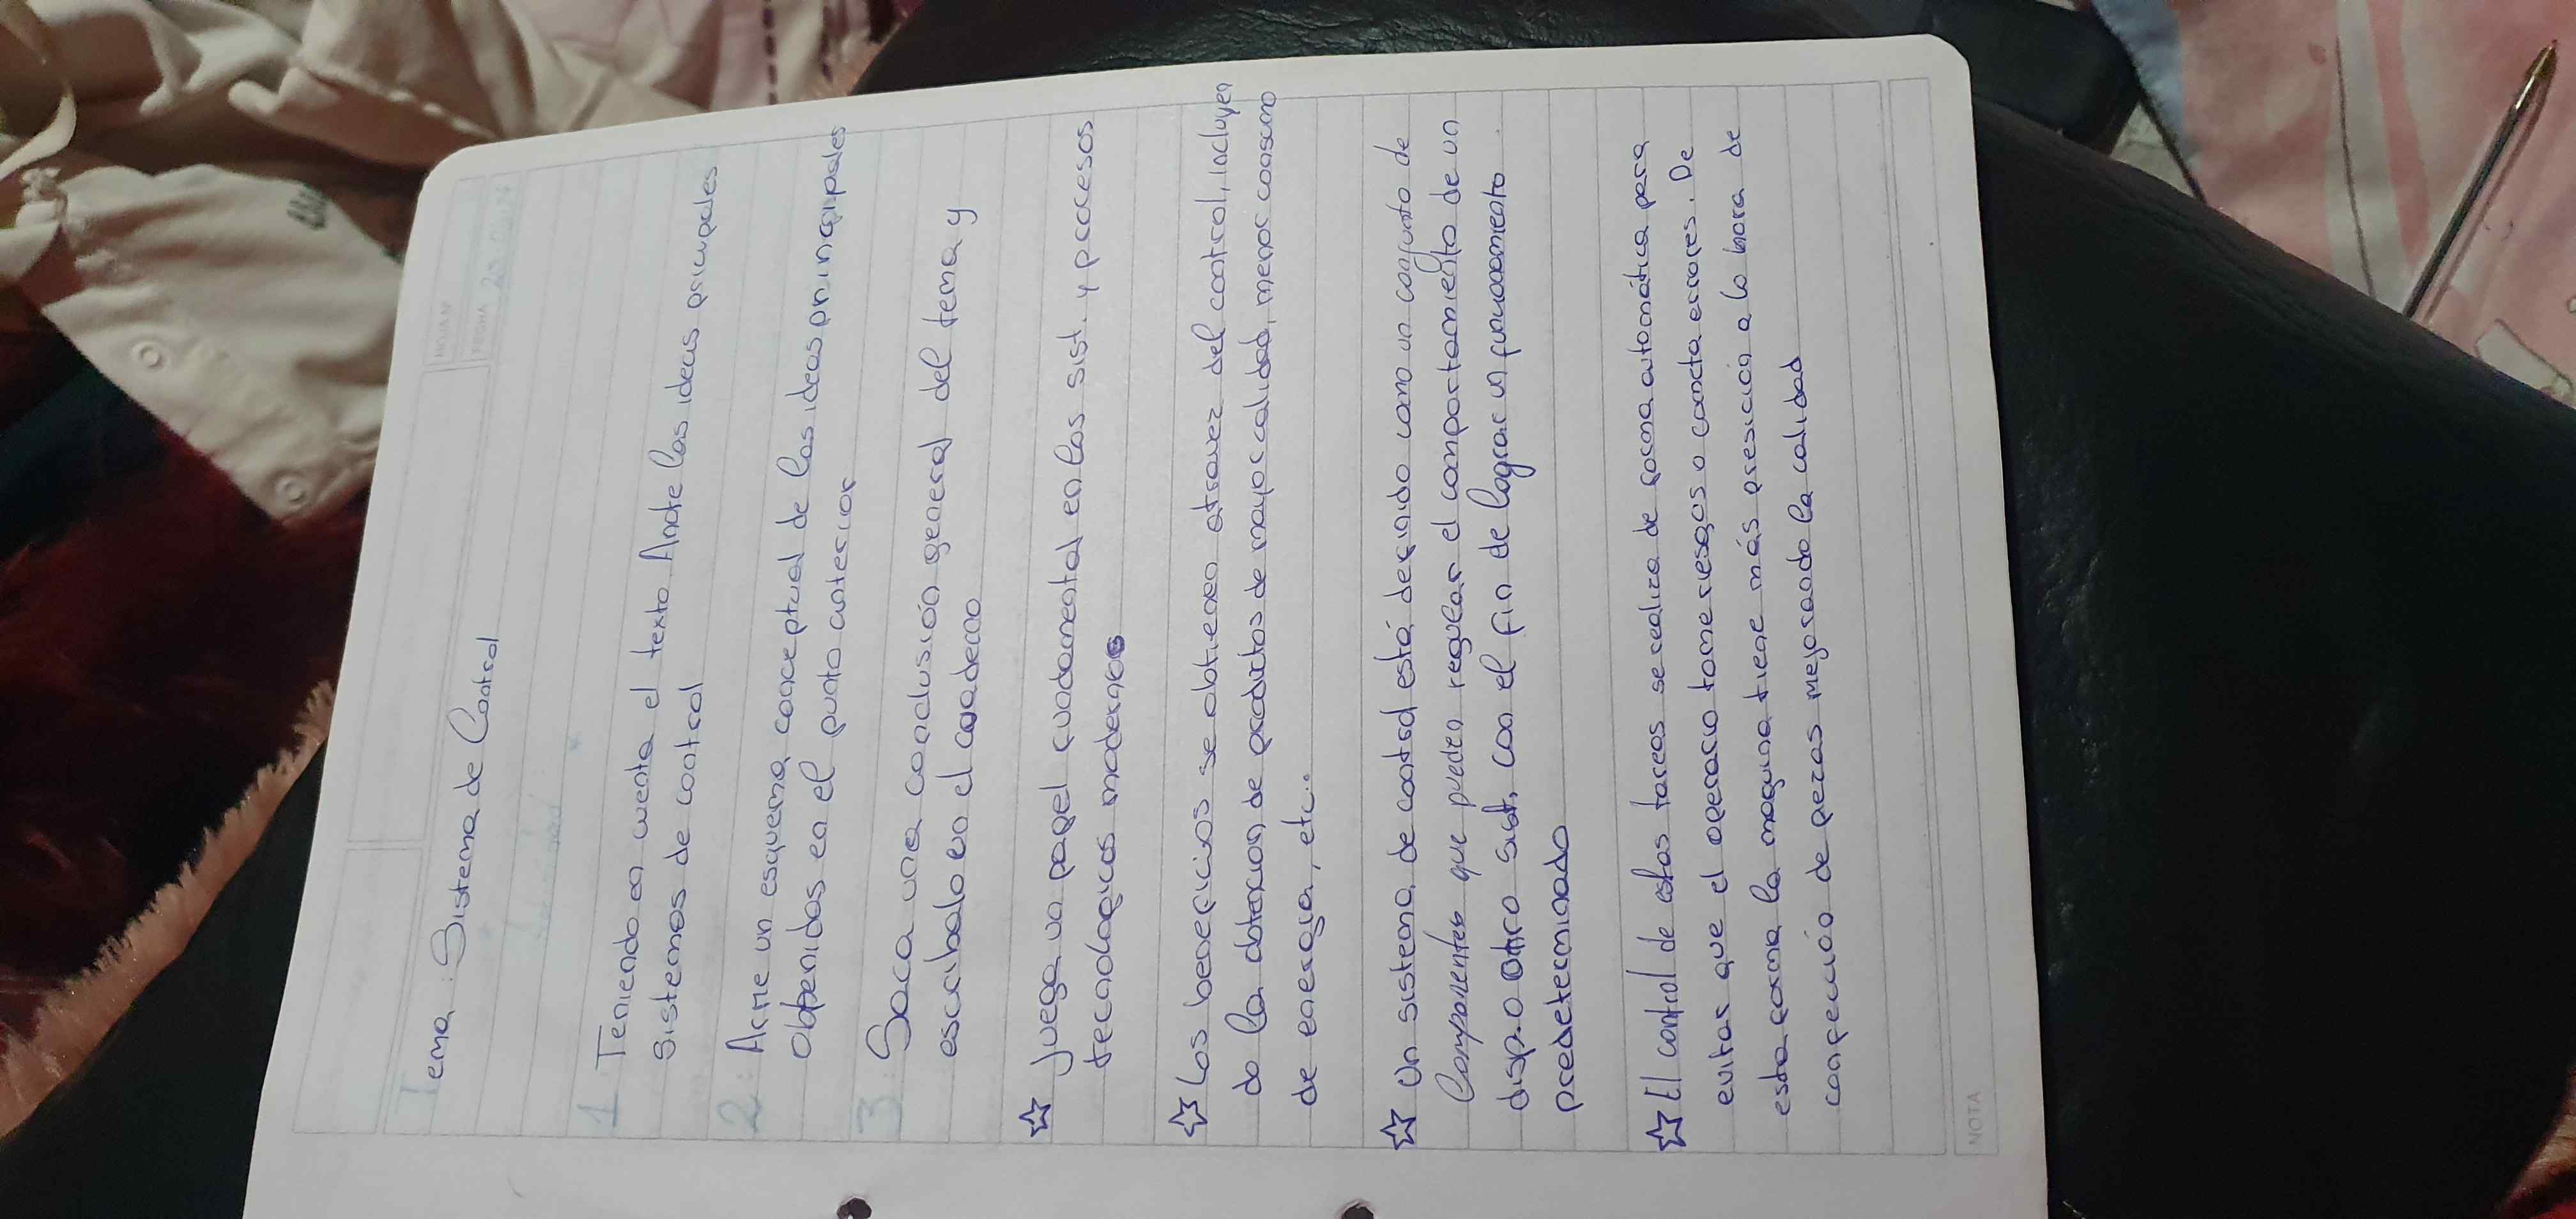 FECHA
Tema: Sistema de Control
1 Teniendo en cuenta el texto Anote las ideas principales
Sistemas de control
2: Arme un esquema conceptual de las ideas principales
obtenidas en el punto anterior
3: Saca una conclusión general del tema y
escribalo en el cuaderno
☆ juega un papel fundamental en los sist. y procesos
tecnologicos modernos
☆ Los beneficios se obtienen atravez del control, incluyen
do la obtencion de productos de mayor calidad, menor consumo
de energia, etc..
☆ Un sistema de control está definido como un conjunto de
Componentes que pueden regular el comportamiento de un
disp. o otro sist. con el fin de lograr un funcionamiento
predeterminado
☆ El control de estas tareas se realiza de forma automática para
evitar que el operario tome riesgos o cometa errores. De
esta forma la maquina tiene más presición a la hora de
confección de piezas mejorando la calidad
NOTA